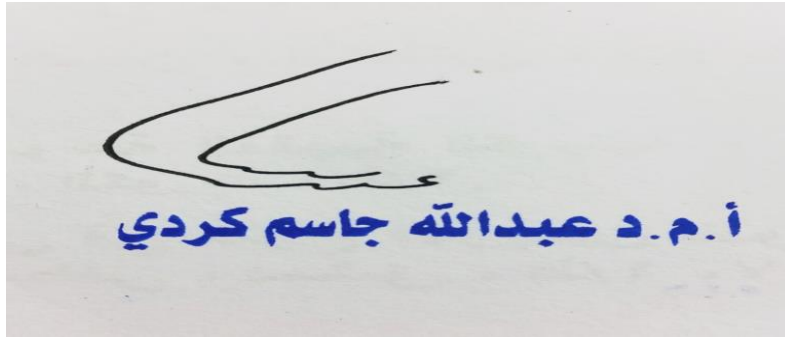 أ.م.د عبدالله جاسم كردي